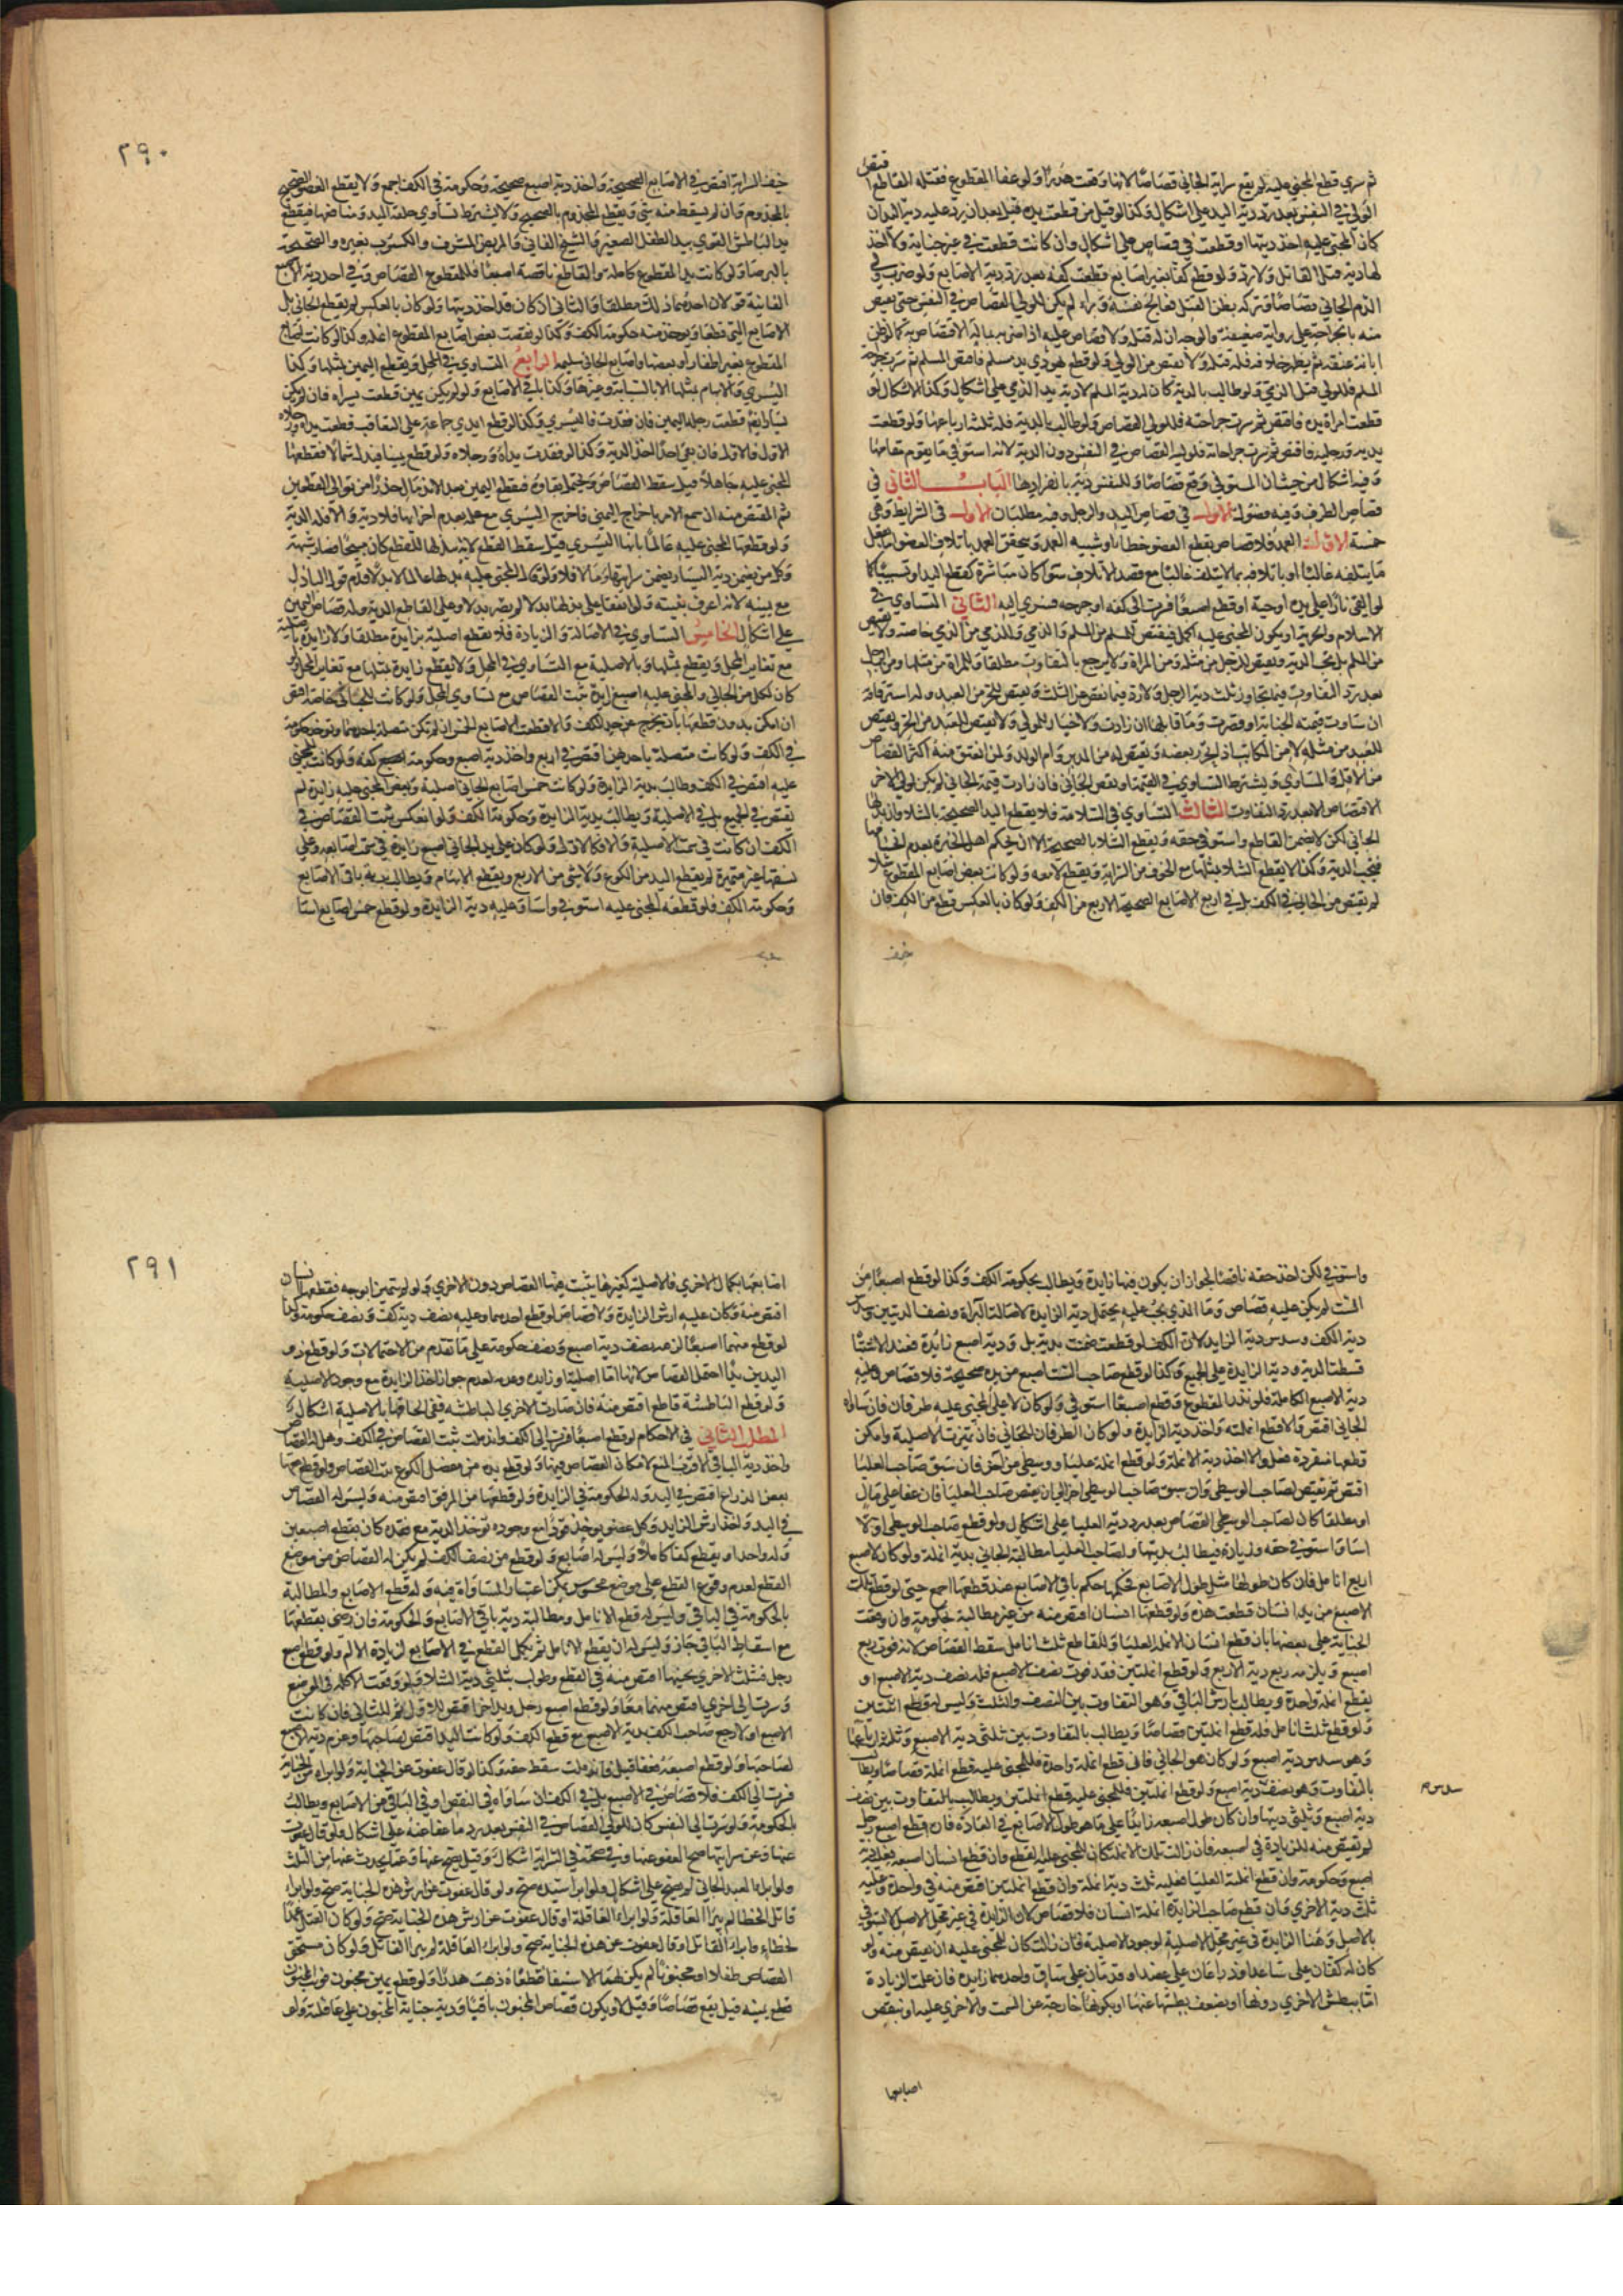 ثم سري قطع المجني عليه لم يقع سراية الجاني قصاصا لانها وقعت هدرا ولو عفا المقطوع فقتله القاطع اقتص
الولي في النفس بعد رد دية اليد على اشكال وكذا لو قتل من قطعت يده قيل بعد ان يرد عليه دية اليد ان
كان المجني عليه اخذ ديتها او قطعت في قصاص على اشكال وان كانت قطعت في غير جناية ولا اخذ
لها دية قتل القاتل ولا رد ولو قطع كفا بغير اصابع قطعت كفه بعد رد دية الاصابع ولو ضرب ولي
الدم الجاني قصاصا وتركه بظن القتل فعالج نفسه وبراء لم يكن للولي القصاص في النفس حتى يقتص
منه بالجراحة على رواية ضعيفة والوجه ان له قتله ولا قصاص عليه اذا ضربه بماله الاقتصاص به كما لو ظن
ابانة عنقه ثم يظهر خلافه فله قتله ولا يقتص من الولي ولو قطع يهودي يد مسلم فاقتص المسلم ثم سرت جراحة
المسلم فللولي قتل الذمي ولو طالب بالدية كان له دية المسلم الا دية يد الذمي على اشكال وكذا الاشكال لو
قطعت امراة يده فاقتص ثم سرت جراحته فللولي القصاص ولو طالب بالدية فله ثلثة ارباعها ولو قطعت
يديه ورجليه فاقتص ثم سرت جراحاته فلوليه القصاص في النفس دون الدية لانه استوفى ما يقوم مقامها
وفيه اشكال من حيث ان المستوفي وقع قصاصا وللنفس دية بانفرادها الباب الثاني في
قصاص الطرف وفيه فصول الاول في قصاص اليد والرجل وفيه مطلبان الاول في الشرايط وهي
خمسة الاول العمد فلا قصاص بقطع العضو خطا او شبيه العمد ويتحقق العمد باتلاف العضو اما بفعل
ما يتلفه غالبا او باتلافه بما لا يتلف غالبا مع قصد الاتلاف سوا كان مباشرة كقطع اليد او تسبيبا كما
لو القى نارا على يده او حية او قطع اصبعا فسرت الى كفه او جرحه فسرى اليه الثاني التساوي في
الاسلام والحرية او يكون المجني عليه اكمل فيقتص للمسلم من المسلم والذمي وللذمي من الذمي خاصة ولا يقتص
من المسلم بل تجب الدية ويقتص للرجل من مثله ومن المراة ولا يرجع بالتفاوت مطلقا وللمراة من مثلها ومن الرجل
بعد رد التفاوت فيما تجاوز ثلث دية الرجل ولا رد فيما نقص عن الثلث ويقتص للحر من العبد وله استرقاقه
ان ساوت قيمته الجناية او قصرت وما قابلها ان زادت ولا خيار للمولى ولا يقتص للعبد من الحر ويقتص
للعبد من مثله لا من المكاتب اذا تحرر بعضه ويقتص له من المدبر وام الولد ولمن انعتق منه اكثر القصاص
من الاقل والمساوي ويشترط التساوي في القيمة او نقص الجاني فان زادت قيمة الجاني لم يكن لمولى الاخر
الاقتصاص الا بعد رد التفاوت الثالث التساوي في السلامة فلا يقطع اليد الصحيحة بالشلا وان بذلها
الجاني لكن لا يضمن القاطع واستوفي حقه ويقطع الشلا بالصحيحة الا ان يحكم اهل الخبرة بعدم انحسامها
فتجب الدية وكذا لا يقطع الشلا بمثلها مع الخوف من السراية ويقطع لا معه ولو كانت بعض اصابع المقطوع شلا
لم يقتص من الجاني في الكف بل في اربع الاصابع الصحيحة الاربع من الكف ولو كان بالعكس قطع من الكف فان
خيف
خيف السراية اقتص في الاصابع الصحيحة واخذ دية اصبع صحيحة وحكومة في الكف اجمع ولا يقطع العضو الصحيح
بالمجذوم وان لم يسقط منه شي ويقطع المجذوم بالصحيح ولا يشترط تساوي خلقة اليد ومنافعها فيقطع
يد الباطش القوي بيد الطفل الصغير والشيخ الفاني والمريض المشرف والكسوب بغيره والصحيحة
بالبرصا ولو كانت يد المقطوع كاملة والقاطع ناقصة اصبعا فللمقطوع القصاص وفي اخذ دية الاصبع
الفايتة قولان احدهما ذلك مطلقا والثاني ان كان قد اخذ ديتها ولو كان بالعكس لم يقطع الجاني بل
الاصابع التي قطعها ويوخذ منه حكومة الكف وكذا لو نقصت بعض اصابع المقطوع انملة وكذا لو كانت اصابع
المقطوع بغير اظفار او بعضها واصابع الجاني سليمة الرابع التساوي في المحل ويقطع اليمين بمثلها وكذا
اليسرى والابهام بمثلها لا بالسبابة وغيرها وكذا باقي الاصابع ولو لم يكن يمين قطعت يسراه فان لم يكن
يسار ايضا قطعت رجله اليمين فان فقدت فاليسرى وكذا لو قطع ايدي جماعة على التعاقب قطعت يداه ورجلاه
الاول فالاول فان بقي احد اخذ الدية وكذا لو فقدت يداه ورجلاه ولو قطع يمينا فبذل شمالا فقطعها
المجني عليه جاهلا قيل سقط القصاص ويحتمل بقاوه فيقطع اليمين بعد الاندمال حذرا من توالي القطعين
ثم المقتص منه ان سمع الامر باخراج اليمنى فاخرج اليسرى مع علمه بعدم اجزايها فلا دية والا فله الدية
ولو قطعها المجني عليه عالما بانها اليسرى قيل سقط القطع لانه بذلها للقطع فكان مبيحا فصار شبهة
وكل من يضمن دية اليسار يضمن سرايتها وما لا فلا ولو قال المجني عليه بذلها عالما لا بدلا قدم قول الباذل
مع يمينه لانه اعرف بنيته ولو اتفقا على بذلها بدلا لم يصر بدلا وعلى القاطع الدية وله قصاص اليمين
على اشكال الخامس التساوي في الاصالة والزيادة فلا يقطع اصلية بزايدة مطلقا ولا زايدة باصلية
مع تغاير المحل ويقطع بمثلها وبالاصلية مع التساوي في المحل ولا يقطع زايدة بمثلها مع تغاير المحل ولو
كان لكل من الجاني والمجني عليه اصبع زايدة ثبت القصاص مع تساوي المحل ولو كانت للجاني خاصة اقتص
ان امكن بدون قطعها بان يخرج عن حد الكف والا قطعت الاصابع الخمس ان لم تكن متصلة باحدها وتوخذ حكومة
في الكف ولو كانت متصلة باحدهن اقتص في اربع واخذ دية اصبع وحكومة الكف ولو كانت للمجني
عليه اقتص في الكف وطالب بدية الزايدة ولو كانت خمس اصابع الجاني اصلية وبعض المجني عليه زايدة لم
يقتص في الجميع بل في الاصلية ويطالب بدية الزايدة وحكومة الكف ولو انعكس ثبت القصاص في
الكف ان كانت في سمت الاصلية والا فكالاول ولو كان على يد الجاني اصبع زايدة في سمت اصابعه وعلى
نسقها غير متميزة لم يقطع اليد من الكوع ولا شي من الاربع ويقطع الابهام ويطالب بدية باقي الاصابع
وحكومة الكف فلو قطعه المجني عليه استوفى واساء وعليه دية الزايدة ولو قطع خمس اصابع اساء
٢٩٠
واستوفى لكن اخذ حقه ناقصا لجواز ان يكون فيها زايدة ويطالب بحكومة الكف وكذا لو قطع اصبعا من
الست لم يكن عليه قصاص وما الذي يجب عليه يحتمل دية الزايدة لاصالة البراة ونصف الديتين وسدس
دية الكف وسدس دية الزايد لان الكف لو قطعت ضمنت بدية يد ودية اصبع زايدة فعند الاشتباه
قسطنا الدية ودية الزايدة على الجميع وكذا لو قطع صاحب الست اصبع من يده صحيحة فلا قصاص وعليه
دية الاصبع الكاملة فلو بذر المقطوع وقطع اصبعا استوفى ولو كان لانملة المجني عليه طرفان فان ساواه
الجاني اقتص والا قطع انملته واخذ دية الزايدة ولو كان الطرفان للجاني فان تميزت الاصلية وامكن
قطعها منفردة فعل والا اخذ دية الانملة ولو قطع انملة عليا ووسطى من آخر فان سبق صاحب العليا
اقتص ثم يقتص لصاحب الوسطى وان سبق صاحب الوسطى اخر الى ان يقتص صاحب العليا فان عفا على مال
او مطلقا كان لصاحب الوسطى القصاص بعد رد دية العليا على اشكال ولو قطع صاحب الوسطى اولا
اساء واستوفى حقه وزيادة فيطالب بديتها ولصاحب العليا مطالبة الجاني بدية انملة ولو كان لاصبع
اربع انامل فان كان طولها مثل طول الاصابع فحكمها حكم باقي الاصابع عند قطعها اجمع حتى لو قطع تلك
الاصبع من يد انسان قطعت هذه ولو قطعها انسان اقتص منه من غير مطالبة لحكومة وان وقعت
الجناية على بعضها بان قطع انسان الانملة العليا وللقاطع ثلث انامل سقط القصاص لانه فوت ربع
اصبع ويلزمه ربع دية الاربع ولو قطع انملتين فقد فوت نصف الاصبع فله نصف دية الاصبع او
يقطع انملة واحدة ويطالب بارش الباقي وهو التفاوت بين النصف والثلث وليس له قطع اثنتين
ولو قطع ثلث انامل فله قطع انملتين قصاصا ويطالب بالتفاوت بين ثلثي دية الاصبع وثلثة ارباعها
وهو سدس دية اصبع ولو كان هو الجاني فان قطع انملة واحدة فللمجني عليه قطع انملة قصاصا ويطالب
بالتفاوت وهو نصف دية اصبع ولو قطع انملتين فللمجني عليه قطع انملتين ويطالب بالتفاوت بين نصف
دية اصبع وثلثي ديتها وان كان طول اصبعه زايدا على ما هو طول الاصابع في العادة فان قطع اصبع رجل
لم يقتص منه للزيادة في اصبعه فان زالت تلك الانملة كان للمجني عليه القطع وان قطع انسان اصبعه فعليه دية
اصبع وحكومة وان قطع انملة العليا فعليه ثلث دية انملة وان قطع انملتين اقتص منه في واحدة وعليه
ثلث دية الاخرى وان قطع صاحب الزايدة انملة انسان فلا قصاص لان الزايدة في غير محل الاصل لا تستوفى
بالاصل وهنا الزايدة في غير محل الاصلية لوجود الاصلية فان زالت كان للمجني عليه ان يقتص منه ولو
كان له كفان على ساعد او ذراعان على عضد او قدمان على ساق واحدهما زايدة فان علمت الزيادة
اما ببطش الاخرى دونها او بضعف بطشها عنها او بكونها خارجة عن السمت والاخرى عليه او بنقص
سدس
اصابعها
اصابعها وكمال الاخرى فالاصلية كغيرها يثبت فيها القصاص دون الاخرى ولو لم يتميزا بوجه فقطعهما انسان
اقتص منه وكان عليه ارش الزايدة ولا قصاص لو قطع احدهما وعليه نصف دية كف ونصف حكومة وكذا
لو قطع منهما اصبعا لزمه نصف دية اصبع ونصف حكومة على ما تقدم من الاحتمالات ولو قطع ذو
اليدين يدا احتمل القصاص لانها اما اصلية او زايدة وعدمه لعدم جواز اخذ الزايدة مع وجود الاصلية
ولو قطع الباطشة قاطع اقتص منه فان صارت الاخرى باطشه ففي الحاقها بالاصلية اشكال
المطلب الثاني في الاحكام لو قطع اصبعا فسرت الى الكف واندملت ثبت القصاص في الكف وهل له القصاص
واخذ دية الباقي الاقرب المنع لامكان القصاص فيهما ولو قطع يده من مفصل الكوع ثبت القصاص ولو قطع معها
بعض الذراع اقتص في اليد وله الحكومة في الزايدة ولو قطعها من المرفق اقتص منه وليس له القصاص
في اليد واخذ ارش الزايد وكل عضو يوخذ قودا مع وجوده توخذ الدية مع فقده كان يقطع اصبعين
وله واحدا او يقطع كفا كاملا وليس له اصابع ولو قطع من نصف الكف لم يكن له القصاص من موضع
القطع لعدم وقوع القطع على موضع محسوس يمكن اعتبار المساواة فيه وله قطع الاصابع والمطالبة
بالحكومة في الباقي وليس له قطع الانامل ومطالبة دية باقي الاصابع والحكومة فان رضي بقطعها
مع اسقاط الباقي جاز وليس له ان يقطع الانامل ثم يكمل القطع في الاصابع لزيادة الالم ولو قطع اصبع
رجل فشلت الاخرى بجنبها اقتص منه في القطع وطولب بثلثي دية الشلا ولو وقعت الاكلة في الموضع
وسرت الى اخرى اقتص منهما معا ولو قطع اصبع رجل ويد اخر اقتص للاول ثم للثاني فان كانت
الاصبع اولا رجع صاحب الكف بدية الاصبع مع قطع الكف ولو كانت اليد اقتص لصاحبها وغرم دية الاصبع
لصاحبها ولو قطع اصبعه فعفا قبل الاندمال سقط حقه وكذا لو قال عفوت عن الجناية ولو ابراه من الجناية
فسرت الى الكف فلا قصاص في الاصبع بل في الكف ان ساواه في النقص او في الباقي من الاصابع ويطالب
بالحكومة ولو سرت الى النفس كان للولي القصاص في النفس بعد رد ما عفا عنه على اشكال ولو قال عفوت
عنها وعن سرايتها صح العفو عنها وفي صحته في السراية اشكال وقيل يصح عنها وعما يحدث عنها من الثلث
ولو ابراء العبد الجاني لم يصح على اشكال ولو ابراء سيده صح ولو قال عفوت عن ارش هذه الجناية صح ولو ابراء
قاتل الخطا لم يبراء العاقلة ولو ابراء العاقلة او قال عفوت عن ارش هذه الجناية صح ولو كان القتل عمدا
لخطاء فابراء القاتل او قال عفوت عن هذه الجناية صح ولو ابراء العاقلة لم يبراء القاتل ولو كان مستحق
القصاص طفلا او مجنونا لم يكن لهما الاستيفا فقطعاه ذهبت هدرا ولو قطع يمين مجنون فوثب المجنون
قطع يمينه قيل يقع قصاصا وقيل لا ويكون قصاص المجنون باقيا ودية جناية المجنون على عاقلته ولو
٢٩١